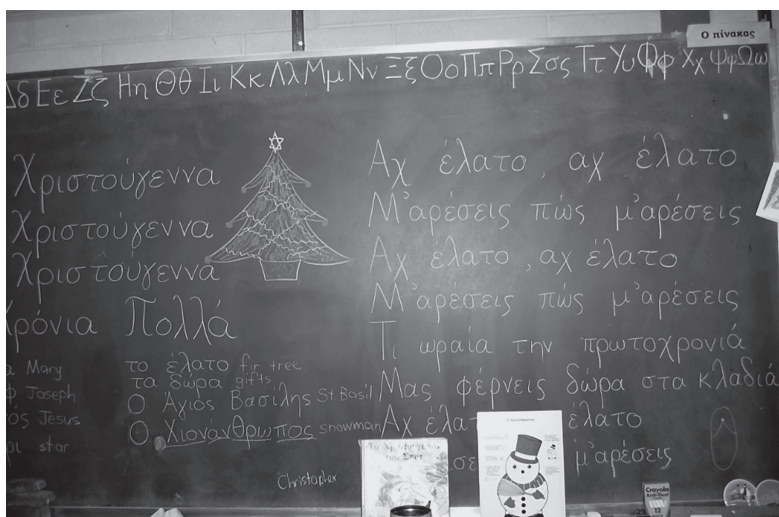 Ο πίνακας
Δδ Εε Ζζ Ηη Θθ Ιι Κκ Λλ Μμ Νν Ξξ Οο Ππ Ρρ Σσς Ττ Υυ Φφ Χχ Ψψ Ωω
Χριστούγεννα
Χριστούγεννα
Χριστούγεννα
Χρόνια Πολλά
Mary
Joseph
Jesus
star
το έλατο fir tree
τα δώρα gifts
Ο Άγιος Βασίλης St. Basil
Ο Χιονάνθρωπος snowman
Christopher
Αχ έλατο, αχ έλατο
Μ'αρέσεις πώς μ'αρέσεις
Αχ έλατο, αχ έλατο
Μ'αρέσεις πώς μ'αρέσεις
Τι ωραία την πρωτοχρονιά
Μας φέρνεις δώρα στα κλαδιά
Αχ έλατο
μ'αρέσεις
Crayola